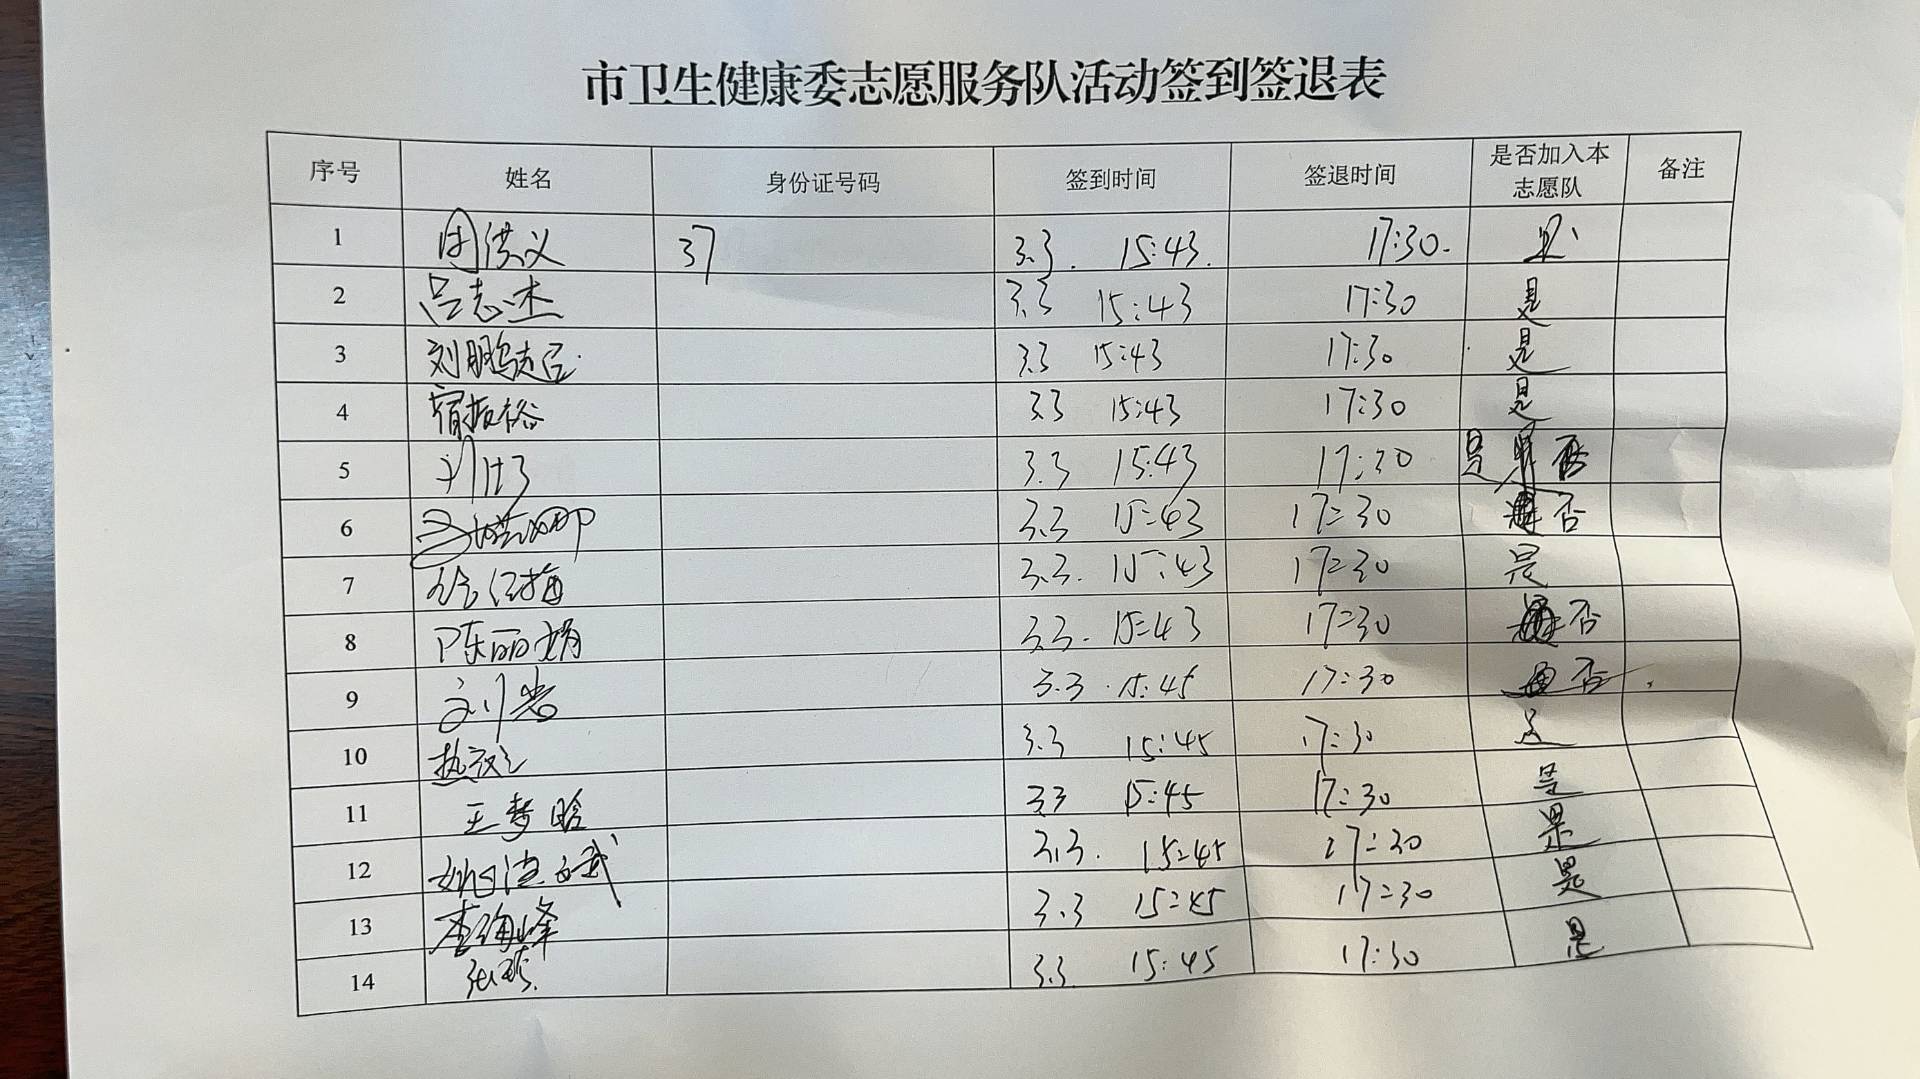 市卫生健康委志愿服务队活动签到签退表
序号 姓名 身份证号码 签到时间 签退时间 是否加入本志愿队 备注
1 周洪义 37 3.3. 15:43. 17:30. 是
2 吕志杰 3.3 15:43 17:30 是
3 刘鹏 3.3 15:43 17:30 是
4 宿振裕 3.3 15:43 17:30 是
5 3.3 15:43 17:30 是 否
6 3.3 15:43 17:30 否
7 徐红梅 3.3. 15:43 17:30 是
8 陈丽娟 3.3. 15:43 17:30 否
9 刘岩 3.3 15:45 17:30 否
10 3.3 15:45 17:30 是
11 王梦晗 3.3 15:45 17:30 是
12 3.3. 15:45 17:30 是
13 李海峰 3.3 15:45 17:30 是
14 3.3 15:45 17:30 是